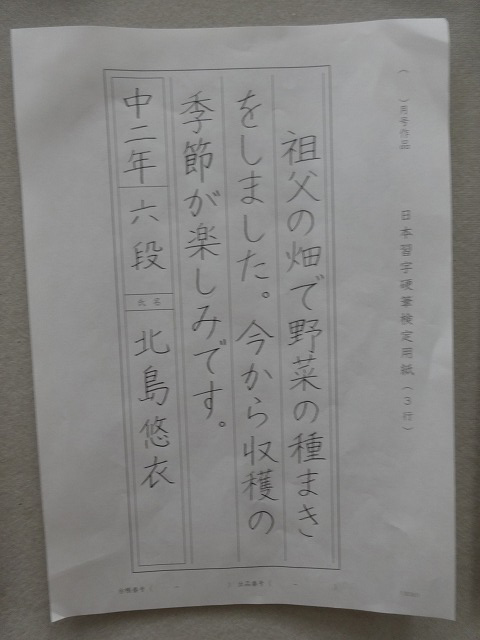 （　）月号作品　日本習字硬筆検定用紙（３行）
祖父の畑で野菜の種まき
をしました。今から収穫の
季節が楽しみです。
中二年　六段　氏名　北島悠衣